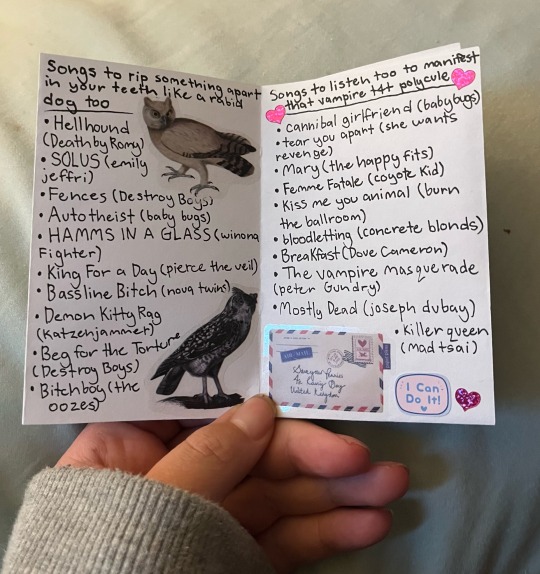 Songs to rip something apart
in your teeth like a rabid
dog too
• Hellhound
(Death by Romy)
• SOLUS (emily
jeffri)
• Fences (Destroy Boys)
• Autotheist (baby bugs)
• HAMMS IN A GLASS (winona
Fighter)
• King For a Day (pierce the veil)
• Bassline Bitch (nova twins)
• Demon Kitty Rag
(Katzenjammer)
• Beg for the Torture
(Destroy Boys)
• Bitchboy (the
oozes)
Songs to listen too to manifest
that vampire t4t polycule
• cannibal girlfriend (baby bugs)
• tear you apart (she wants
revenge)
• Mary (the happy fits)
• Femme Fatale (coyote Kid)
• Kiss me you animal (burn
the ballroom)
• bloodletting (concrete blonds)
• Breakfast (Dove Cameron)
• The vampire masquerade
(peter Gundry)
• Mostly Dead (joseph dubay)
• Killer queen
(mad tsai)
AIR MAIL
United Kingdom
I Can
Do It!